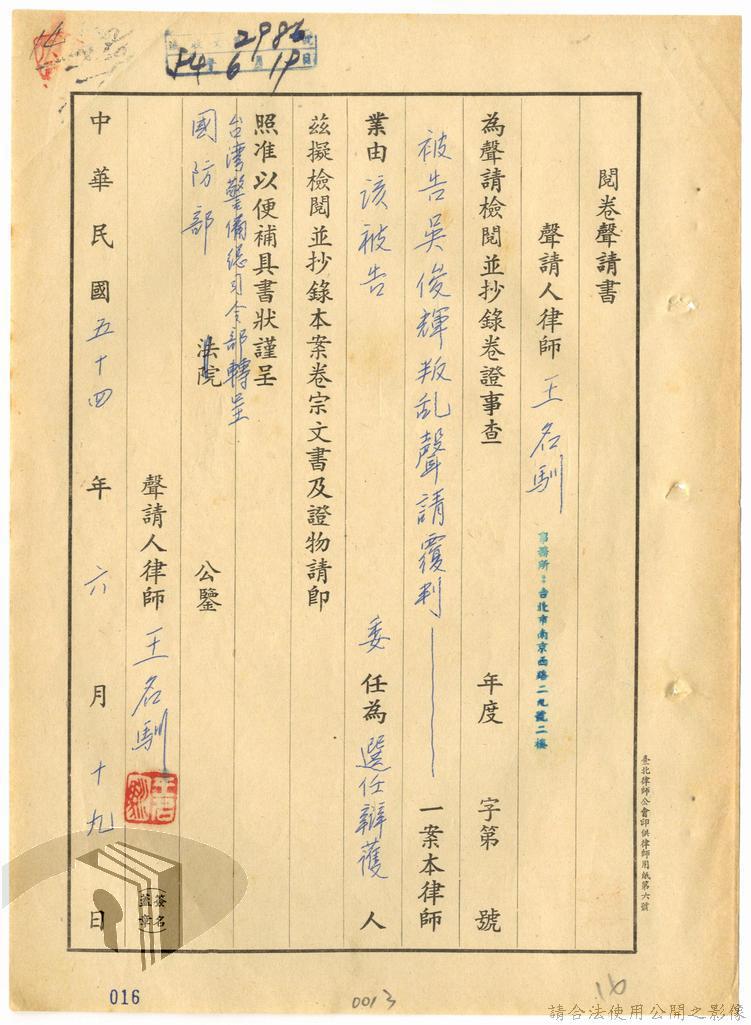 2986
54 6 19
閱卷聲請書
聲請人律師 王名馴
事務所：台北市南京西路二九號二樓
為聲請檢閱並抄錄卷證事查 年度 字第 號
被告吳俊輝叛乱聲請覆判 一案本律師
業由該被告 委任為選任辯護人
茲擬檢閱並抄錄本案卷宗文書及證物請卽
照准以便補具書狀謹呈
台灣警備總司令部轉呈
國防部 法院 公鑒
聲請人律師 王名馴
簽名
蓋章
中華民國五十四年六月十九日
臺北律師公會印供律師用紙第六號
016
0013
16
請合法使用公開之影像